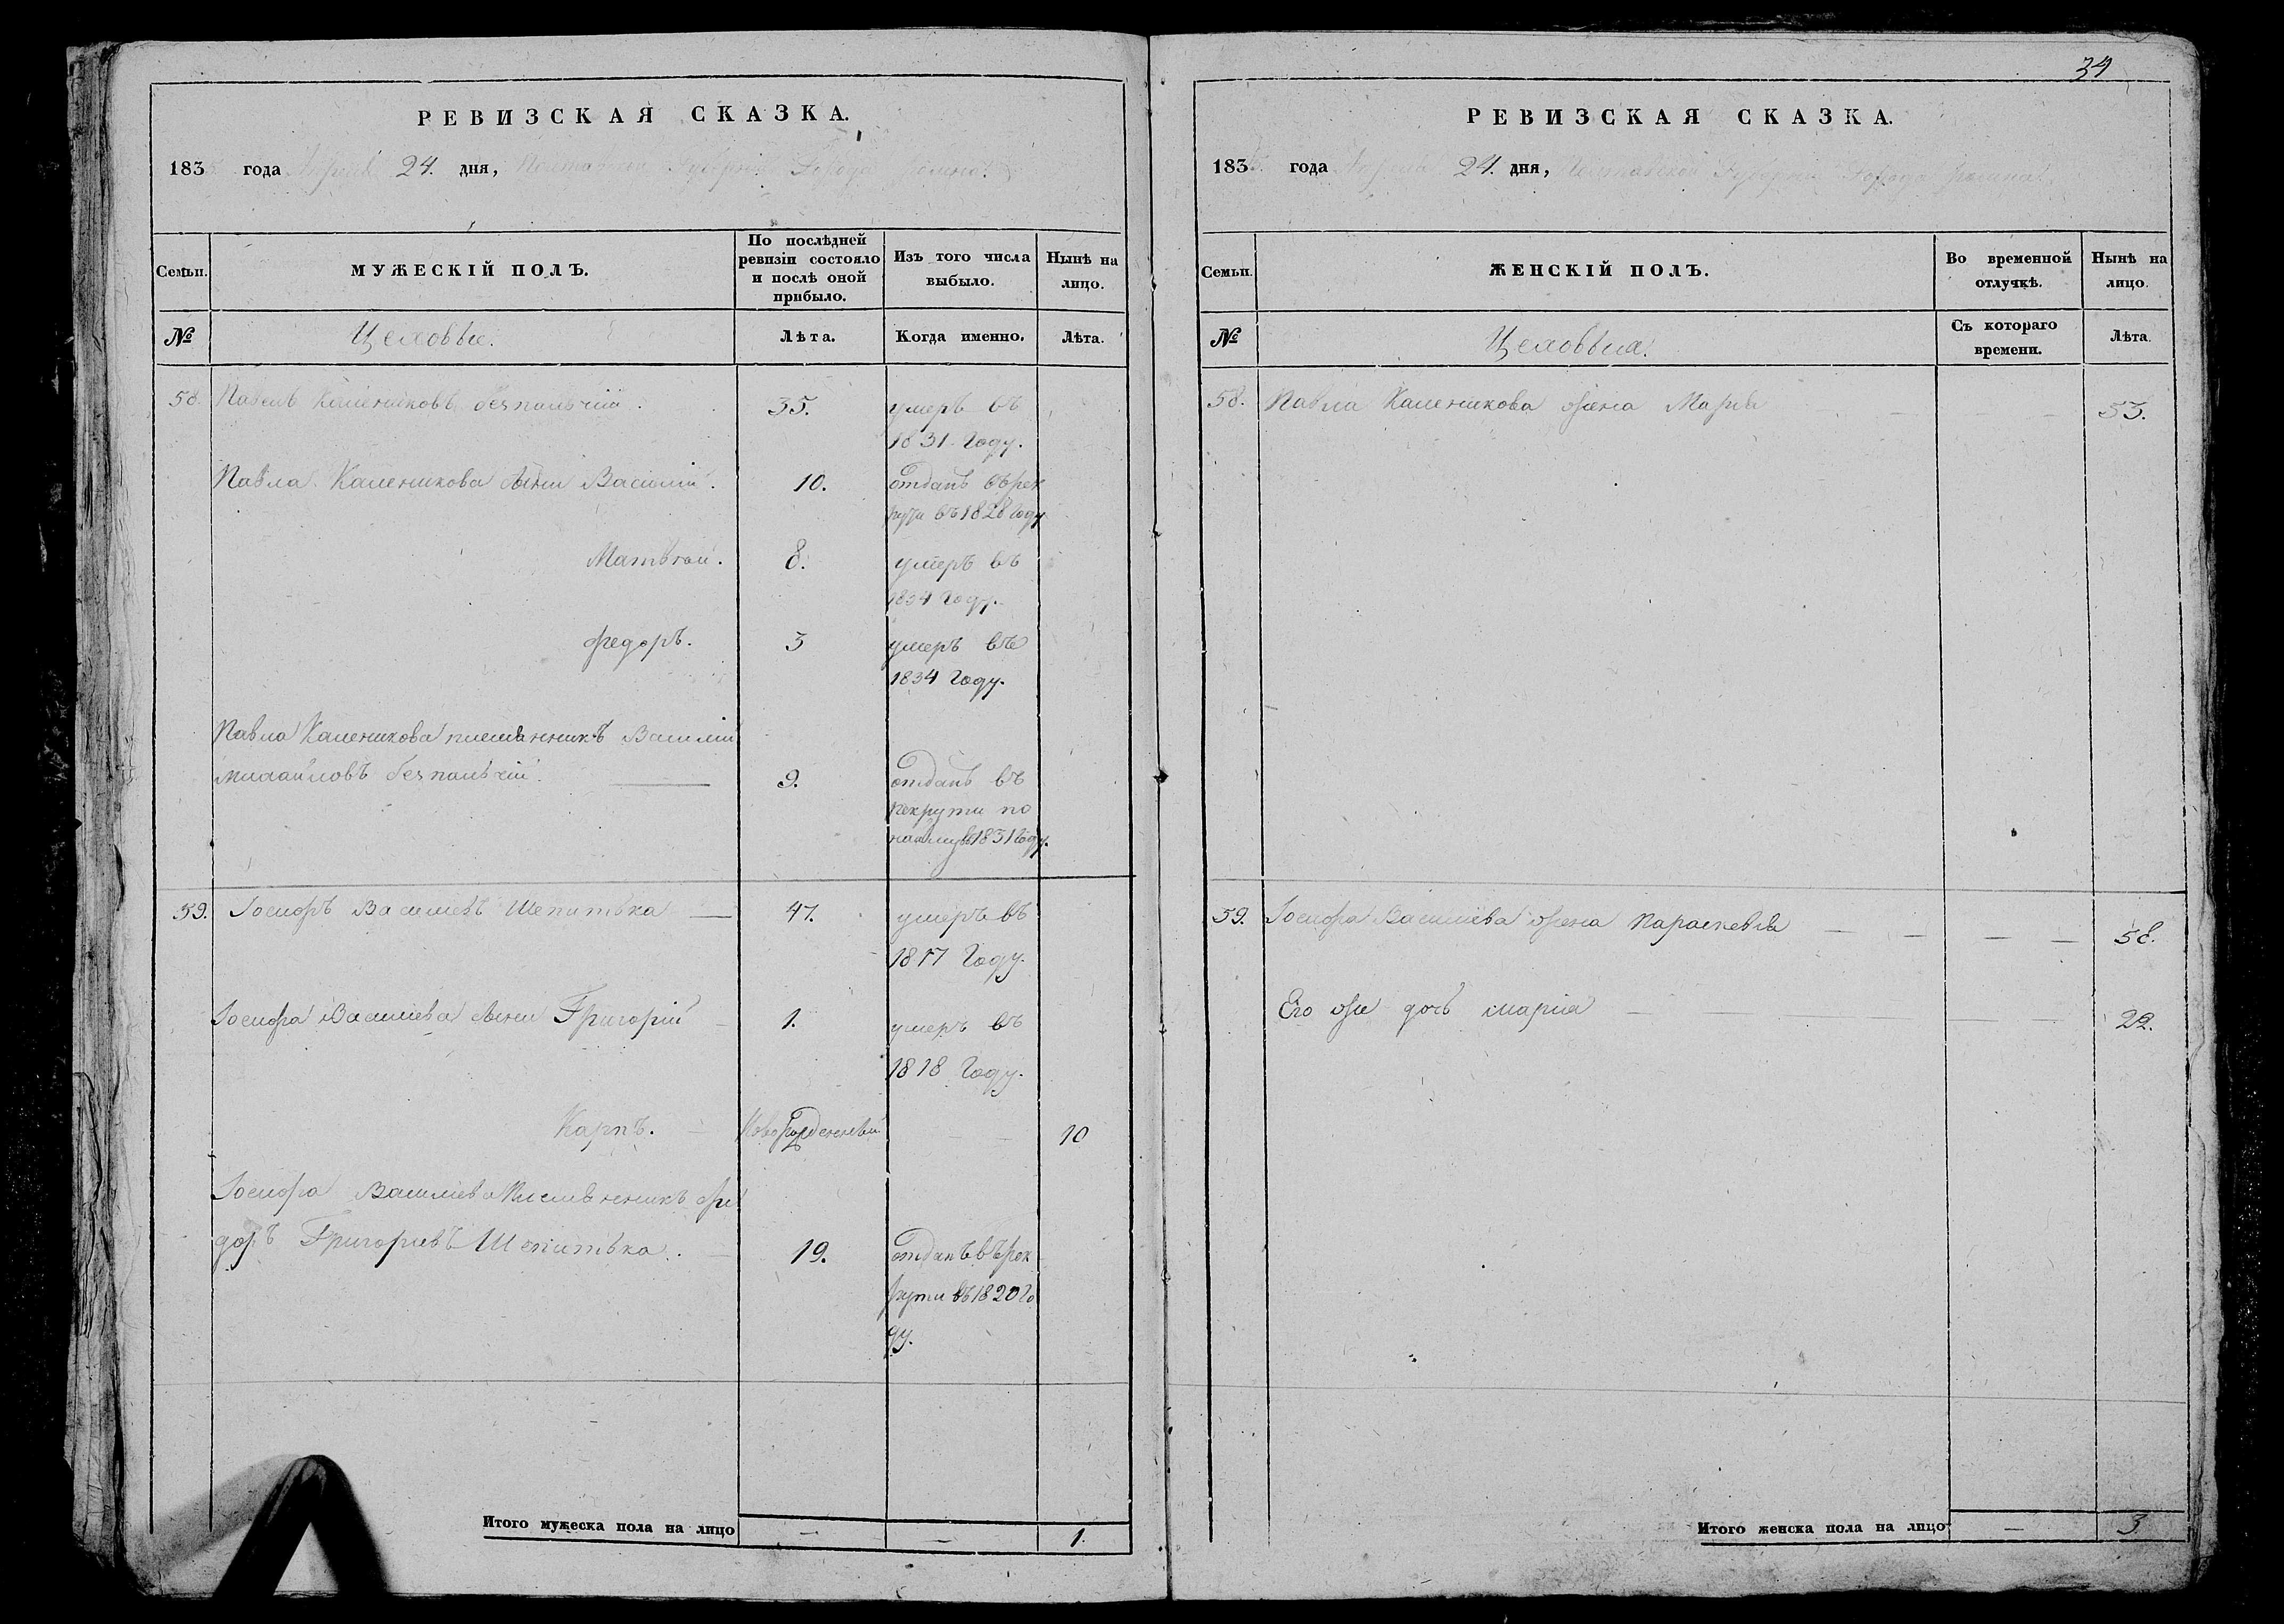 РЕВИЗСКАЯ СКАЗКА.
183 года Апреля 24. дня, Полтавской Губернии Города
Семьи.
МУЖЕСКІЙ ПОЛЪ.
По послѣдней
ревизіи состояло
и послѣ оной
прибыло.
Изъ того числа
выбыло.
Нынѣ на
лицо.
№
Цеховые.
Лѣта.
Когда именно.
Лѣта.
58. Павелъ Калениковъ безпальчій. 35. умеръ въ
1831 Году.
Павла Каленикова сыни Василій. 10. отданъ въ рек
рути въ 1828 Году
Матвѣй. 8. умеръ въ
1834 Году.
Федоръ. 3 умеръ въ
1834 Году.
Павла Каленикова племянникъ Василій
михайловъ безпальчій. 9. отданъ въ
рекрути по
найму въ 1831 Году.
59. Іосифъ Василіевъ Шепитька 47. умеръ въ
1817 Году.
Іосифа Василіева сыни Григорій 1. умеръ въ
1818 Году.
Карпъ. Новорожденный 10
Іосифа Василіева Племянникъ Фе
доръ Григоріевъ Шепитька. 19. отданъ въ рек
рути въ 1820 Го
ду.
Итого мужеска пола на лицо — — 1.
34
РЕВИЗСКАЯ СКАЗКА.
183 года Апреля 24. дня, Полтавской Губернии Города
Семьи.
ЖЕНСКІЙ ПОЛЪ.
Во временной
отлучкѣ.
Нынѣ на
лицо.
№
Цеховыя.
Съ котораго
времени.
Лѣта.
58. Павла Каленикова жена Марія 53.
59. Іосифа Василіева жена Параскевія 58.
Его же дочь марія 22.
Итого женска пола на лицо — 3